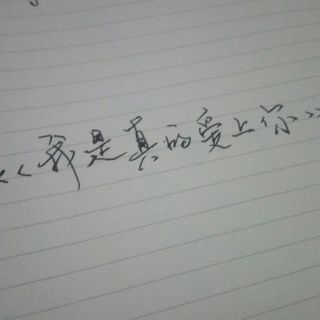 <<我是真的爱上你>>